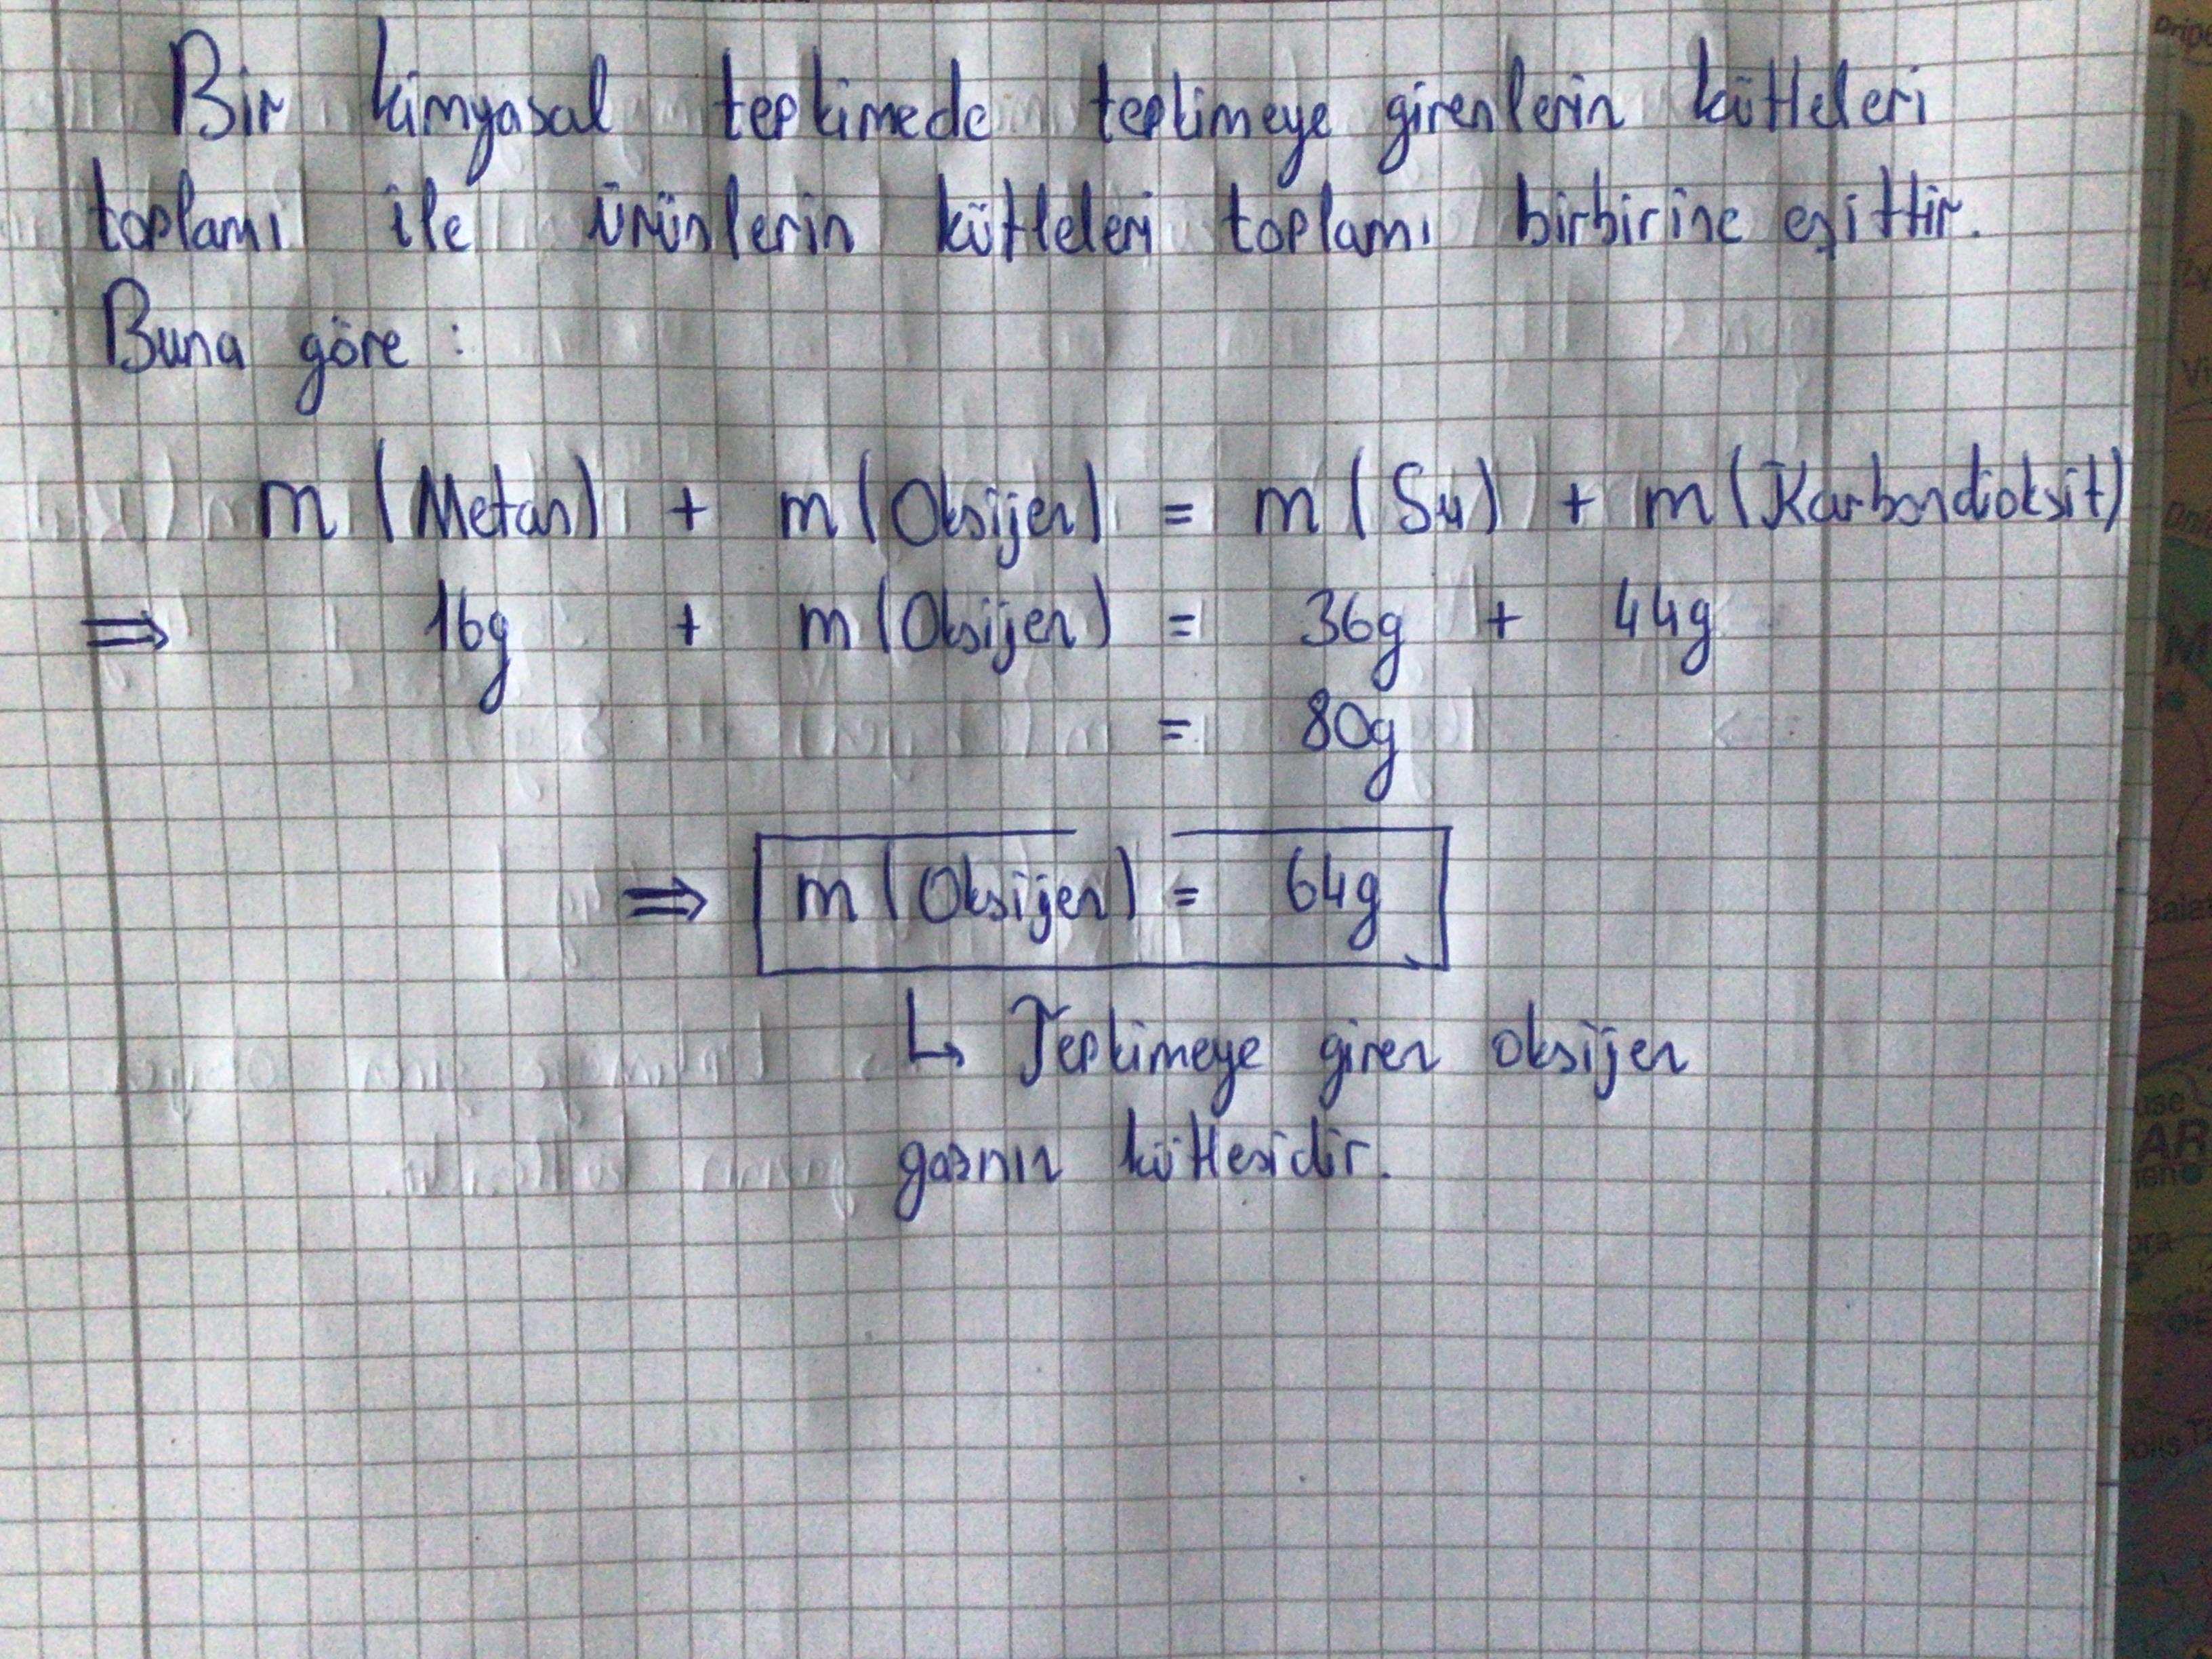 Bir kimyasal tepkimede tepkimeye girenlerin kütleleri
toplamı ile ürünlerin kütleleri toplamı birbirine eşittir.
Buna göre :
m (Metan) + m (Oksijen) = m (Su) + m (Karbondioksit)
⇒ 16g + m (Oksijen) = 36g + 44g
= 80g
⇒ m (Oksijen) = 64g
↳ Tepkimeye giren oksijen
gazının kütlesidir.